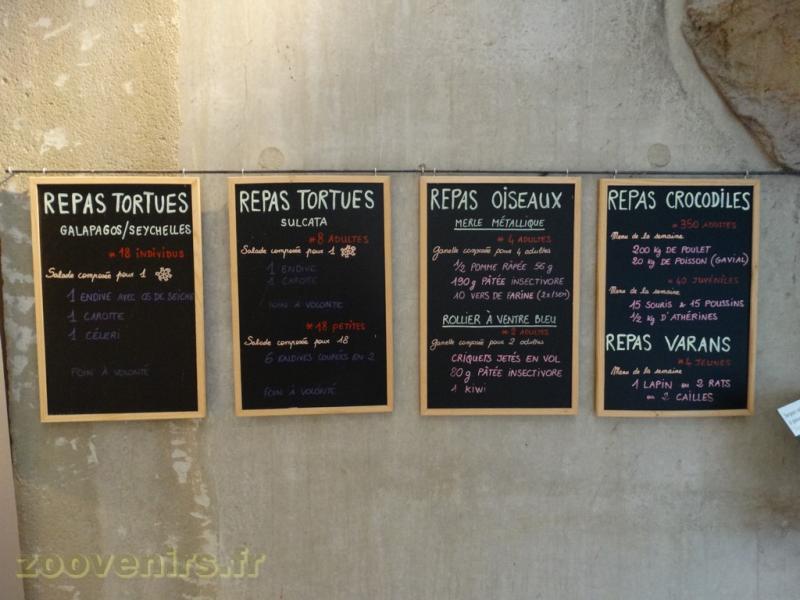 REPAS TORTUES
GALAPAGOS/SEYCHELLES
*18 INDIVIDUS
Salade composée pour 1
1 ENDIVE AVEC OS DE SEICHE
1 CAROTTE
1 CÉLERI
FOIN À VOLONTÉ
REPAS TORTUES
SULCATA
*8 ADULTES
Salade composée pour 1
1 ENDIVE
1 CAROTTE
FOIN À VOLONTÉ
*18 PETITES
Salade composée pour 18
6 ENDIVES COUPÉES EN 2
FOIN À VOLONTÉ
REPAS OISEAUX
MERLE MÉTALLIQUE
*4 ADULTES
Gamelle composée pour 4 adultes
1/2 POMME RÂPÉE 56 g
190 g PÂTÉE INSECTIVORE
10 VERS DE FARINE (2x/SEM)
ROLLIER À VENTRE BLEU
*2 ADULTES
Gamelle composée pour 2 adultes
CRIQUETS JETÉS EN VOL
80 g PÂTÉE INSECTIVORE
1 KIWI
REPAS CROCODILES
*350 ADULTES
Menu de la semaine
200 kg DE POULET
20 kg DE POISSON (GAVIAL)
*40 JUVÉNILES
Menu de la semaine
15 SOURIS & 15 POUSSINS
1/2 kg D'ATHÉRINES
REPAS VARANS
*4 JEUNES
Menu de la semaine
1 LAPIN ou 2 RATS
ou 2 CAILLES
zoovenirs.fr